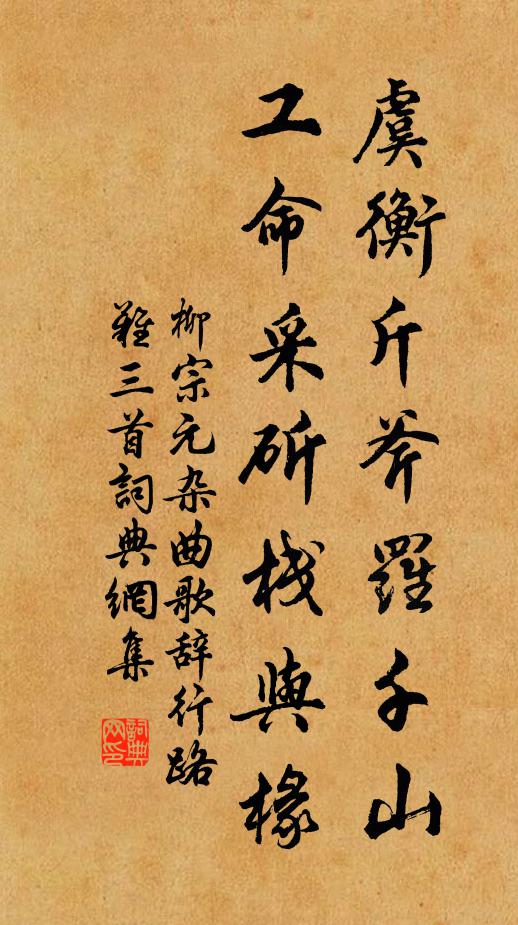 虞衡斤斧羅千山
工命采斫栈與椽
柳宗元杂曲歌辞行路
難三首詞典網集
詞典网印